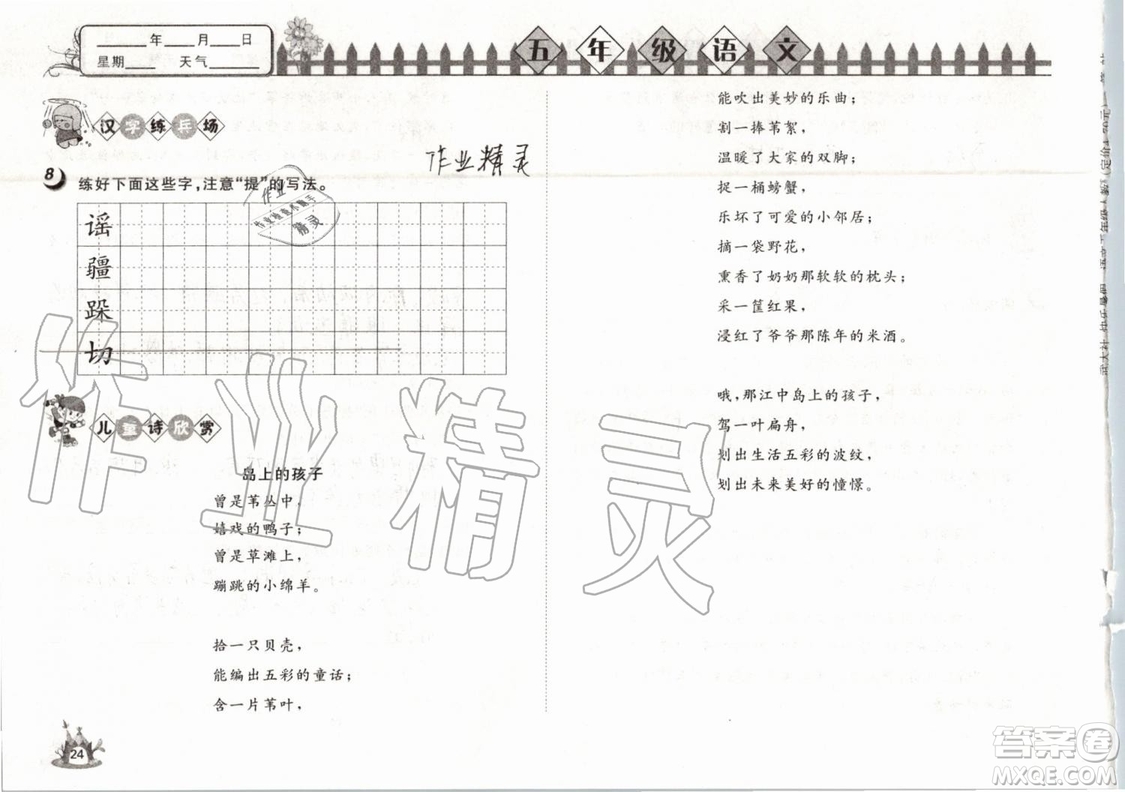 ____年____月____日
星期____ 天气____
五年级语文
汉字练兵场
8 练好下面这些字,注意“提”的写法。
作业精灵
作业
精灵
谣
疆
跺
切
儿童诗欣赏
岛上的孩子
曾是苇丛中,
嬉戏的鸭子;
曾是草滩上,
蹦跳的小绵羊。
拾一只贝壳,
能编出五彩的童话;
含一片苇叶,
能吹出美妙的乐曲;
割一捧苇絮,
温暖了大家的双脚;
捉一桶螃蟹,
乐坏了可爱的小邻居;
摘一袋野花,
熏香了奶奶那软软的枕头;
采一筐红果,
浸红了爷爷那陈年的米酒。
哦,那江中岛上的孩子,
驾一叶扁舟,
划出生活五彩的波纹,
划出未来美好的憧憬。
作业精灵
24
答案卷
MXQE.COM